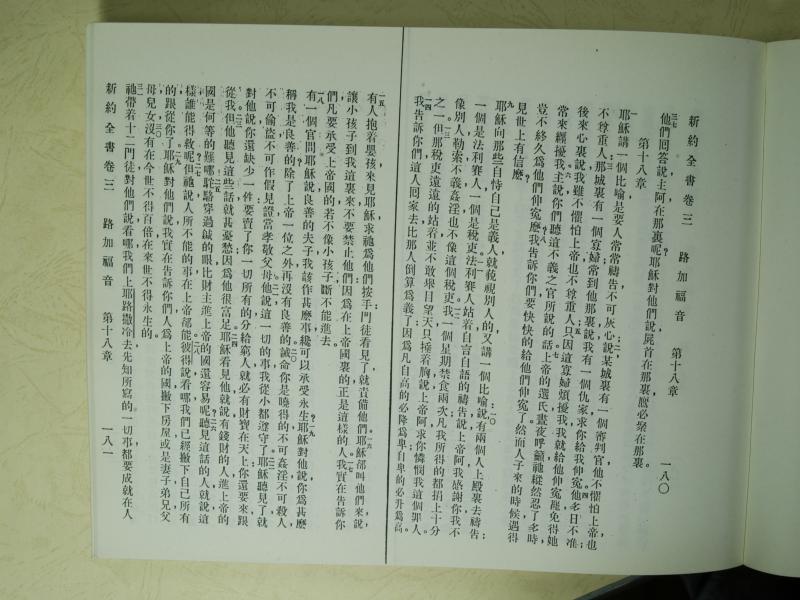 新約全書卷三　路加福音　第十八章　一八〇
三七
他們回答說主阿在那裏呢耶穌對他們說屍首在那裏鷹必聚在那裏。
第十八章
一
耶穌講一個比喻是要人常常禱告不可灰心說某城裏有一個審判官他不懼怕上帝也
不尊重人那城裏有一個寡婦常到他那裏說我有一個仇家求你給我伸冤他多日不准
後來心裏說我雖不懼怕上帝也不尊重人只因這寡婦煩擾我我就給他伸冤罷免得她
常來纏擾我主說你們聽這不義之官所說的話上帝的選民晝夜呼籲祂縱然忍了多時
豈不終久爲他們伸冤麽我告訴你們要快快的給他們伸冤了然而人子來的時候遇得
見世上有信麽
九
耶穌向那些自恃自己是義人就藐視別人的又講一個比喻說有兩個人上殿裏去禱告
一個是法利賽人一個是稅吏法利賽人站着自言自語的禱告說上帝阿我感謝你我不
像別人勒索不義姦淫也不像這個稅吏我一個星期禁食兩次凡我所得的都捐上十分
之一但那稅吏遠遠的站着並不敢舉目望天只捶着胸說上帝阿求你憐憫我這個罪人
一四
我告訴你們這人回家去比那人倒算爲義了因爲凡自高的必降爲卑自卑的必升爲高。
一五
有人抱着嬰孩來見耶穌求祂爲他們按手門徒看見了就責備他們耶穌卻叫他們來說
讓小孩子到我這裏來不要禁止他們因爲在上帝國裏的正是這樣的人我實在告訴你
們凡要承受上帝國的若不像小孩子斷不能進去
一八
有一個官問耶穌說良善的夫子我該作甚麽事纔可以承受永生耶穌對他說你爲甚麽
稱我是良善的除了上帝一位之外再沒有良善的誡命你是曉得的不可姦淫不可殺人
不可偷盜不可作假見證當孝敬父母他說這一切的事我從小都遵守了耶穌聽見了就
對他說你還缺少一件要賣了你一切所有的分給窮人就必有財寶在天上你還要來跟
從我但他聽見這些話就甚憂愁因爲他很富足耶穌看見他就說有錢財的人進上帝的
國是何等的難哪駱駝穿過鍼的眼比財主進上帝的國還容易呢聽見這話的人就說這
樣誰能得救呢但祂說人所不能的事在上帝都能彼得說看哪我們已經撇下自己所有
的跟從你了耶穌對他們說我實在告訴你們人爲上帝的國撇下房屋或是妻子弟兄父
母兒女沒有在今世不得百倍在來世不得永生的。
三一
祂帶着十二門徒對他們說看哪我們上耶路撒冷去先知所寫的一切事都要成就在人
新約全書卷三　路加福音　第十八章　一八一